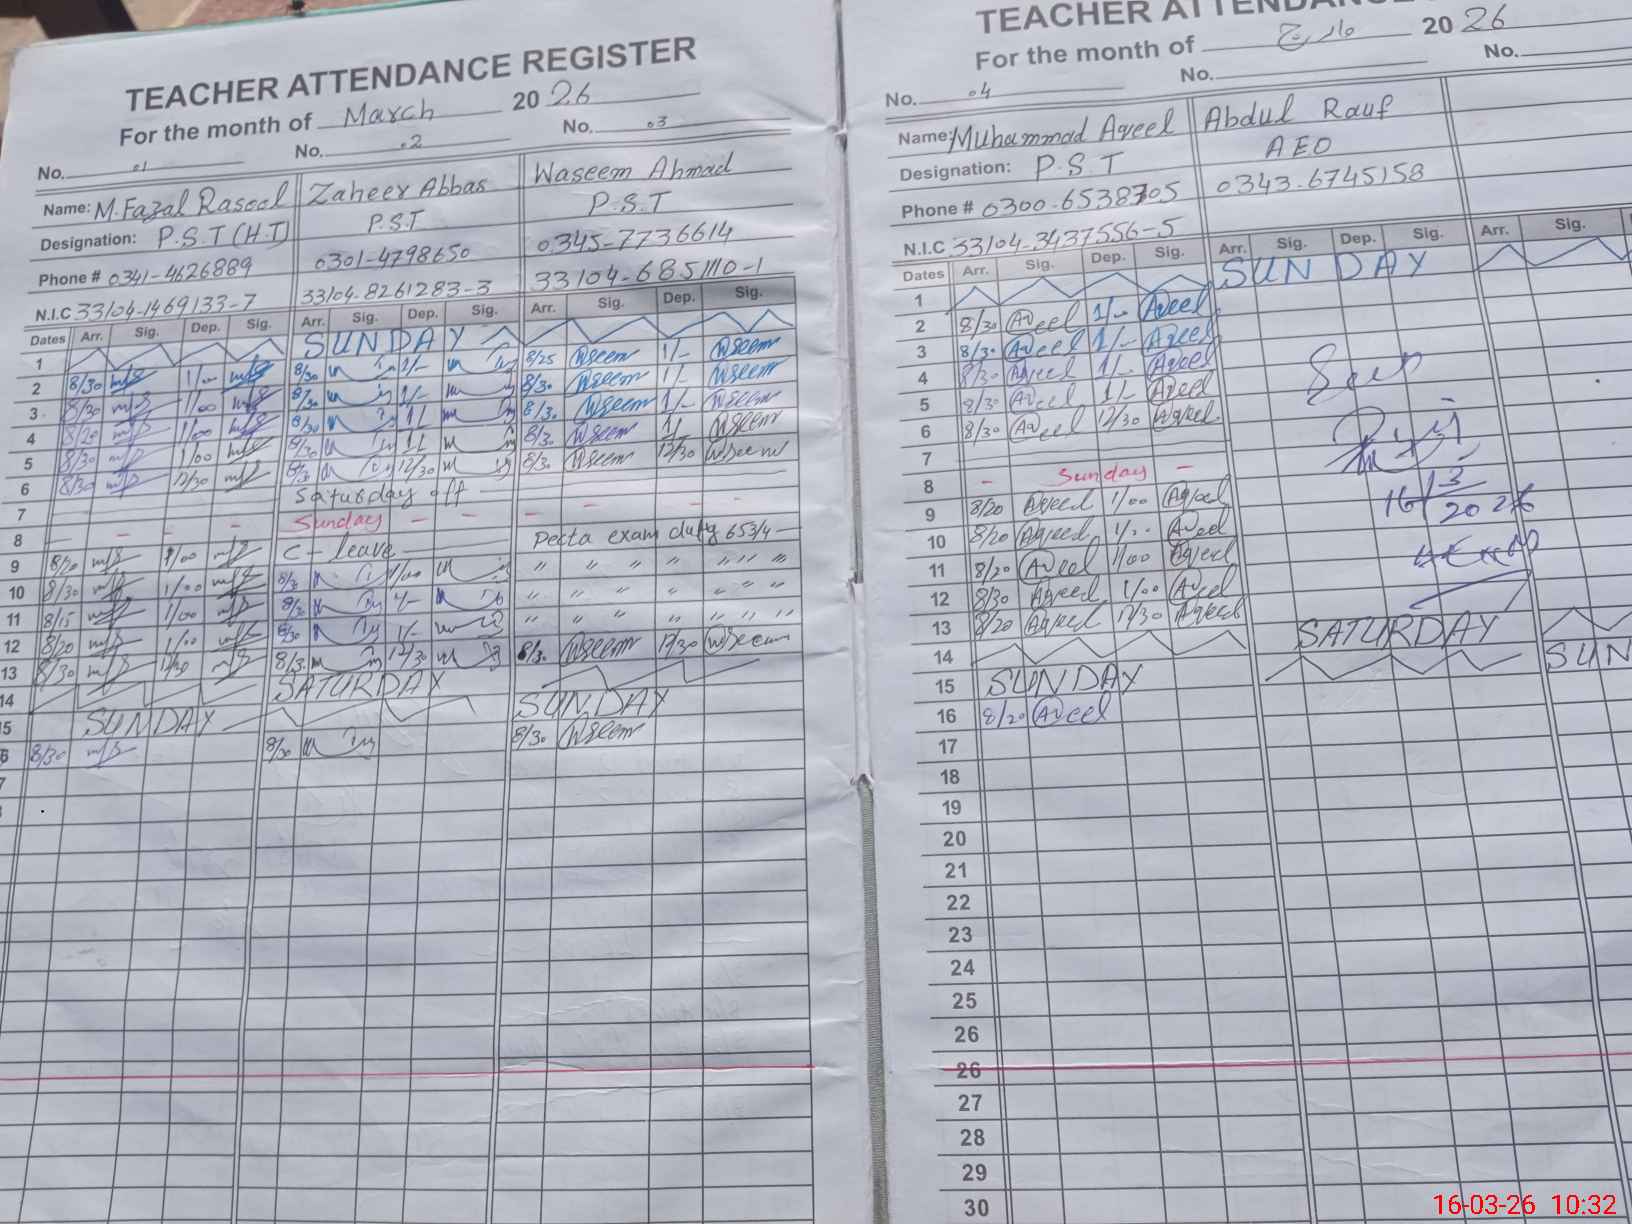 TEACHER ATTENDANCE REGISTER
For the month of March 2026
No. 01 No. 02 No. 03
Name: M. Fazal Rasool Zaheer Abbas Waseem Ahmad
Designation: P.S.T (H.T) P.S.T P.S.T
Phone # 0341-4626889 0301-4798650 0345-7736614
N.I.C 33104-1469133-7 33104-8261283-3 33104-6851110-1
Dates Arr. Sig. Dep. Sig. Arr. Sig. Dep. Sig. Arr. Sig. Dep. Sig.
1 SUNDAY
2 8/30 1/00 8/30 1/- 8/25 Wseem 1/- Wseem
3 8/30 1/00 8/30 1/- 8/30 Wseem 1/- Wseem
4 8/20 1/00 8/30 1/- 8/30 Wseem 1/- Wseem
5 8/30 1/00 8/30 1/- 8/30 Wseem 1/- Wseem
6 8/30 12/30 8/30 12/30 8/30 Wseem 12/30 Wseem
7 Saturday off
8 Sunday
9 8/20 1/00 C-leave Pecta exam duty 653/4
10 8/30 1/00 8/30 1/00 " " " " " " "
11 8/15 1/00 8/30 1/- " " " " " "
12 8/20 1/00 8/30 1/- " " " " " " "
13 8/30 12/30 8/30 12/30 8/30 Wseem 12/30 Wseem
14 SATURDAY
15 SUNDAY SUNDAY
16 8/30 8/30 8/30 Wseem
TEACHER ATTENDANCE
For the month of مارچ 2026
No. 04 No. No.
Name: Muhammad Aqeel Abdul Rauf
Designation: P.S.T AEO
Phone # 0300-6538705 0343-6745158
N.I.C 33104-3437556-5
Dates Arr. Sig. Dep. Sig. Arr. Sig. Dep. Sig. Arr. Sig.
1 SUNDAY
2 8/30 Aqeel 1/- Aqeel
3 8/30 Aqeel 1/- Aqeel
4 8/30 Aqeel 1/- Aqeel
5 8/30 Aqeel 1/- Aqeel
6 8/30 Aqeel 12/30 Aqeel
7
8 Sunday
9 8/20 Aqeel 1/00 Aqeel
10 8/20 Aqeel 1/00 Aqeel
11 8/20 Aqeel 1/00 Aqeel
12 8/30 Aqeel 1/00 Aqeel
13 8/20 Aqeel 12/30 Aqeel
14 SATURDAY
15 SUNDAY SUN
16 8/20 Aqeel
Seen
16/3
2026
17
18
19
20
21
22
23
24
25
26
26
27
28
29
30
16-03-26 10:32